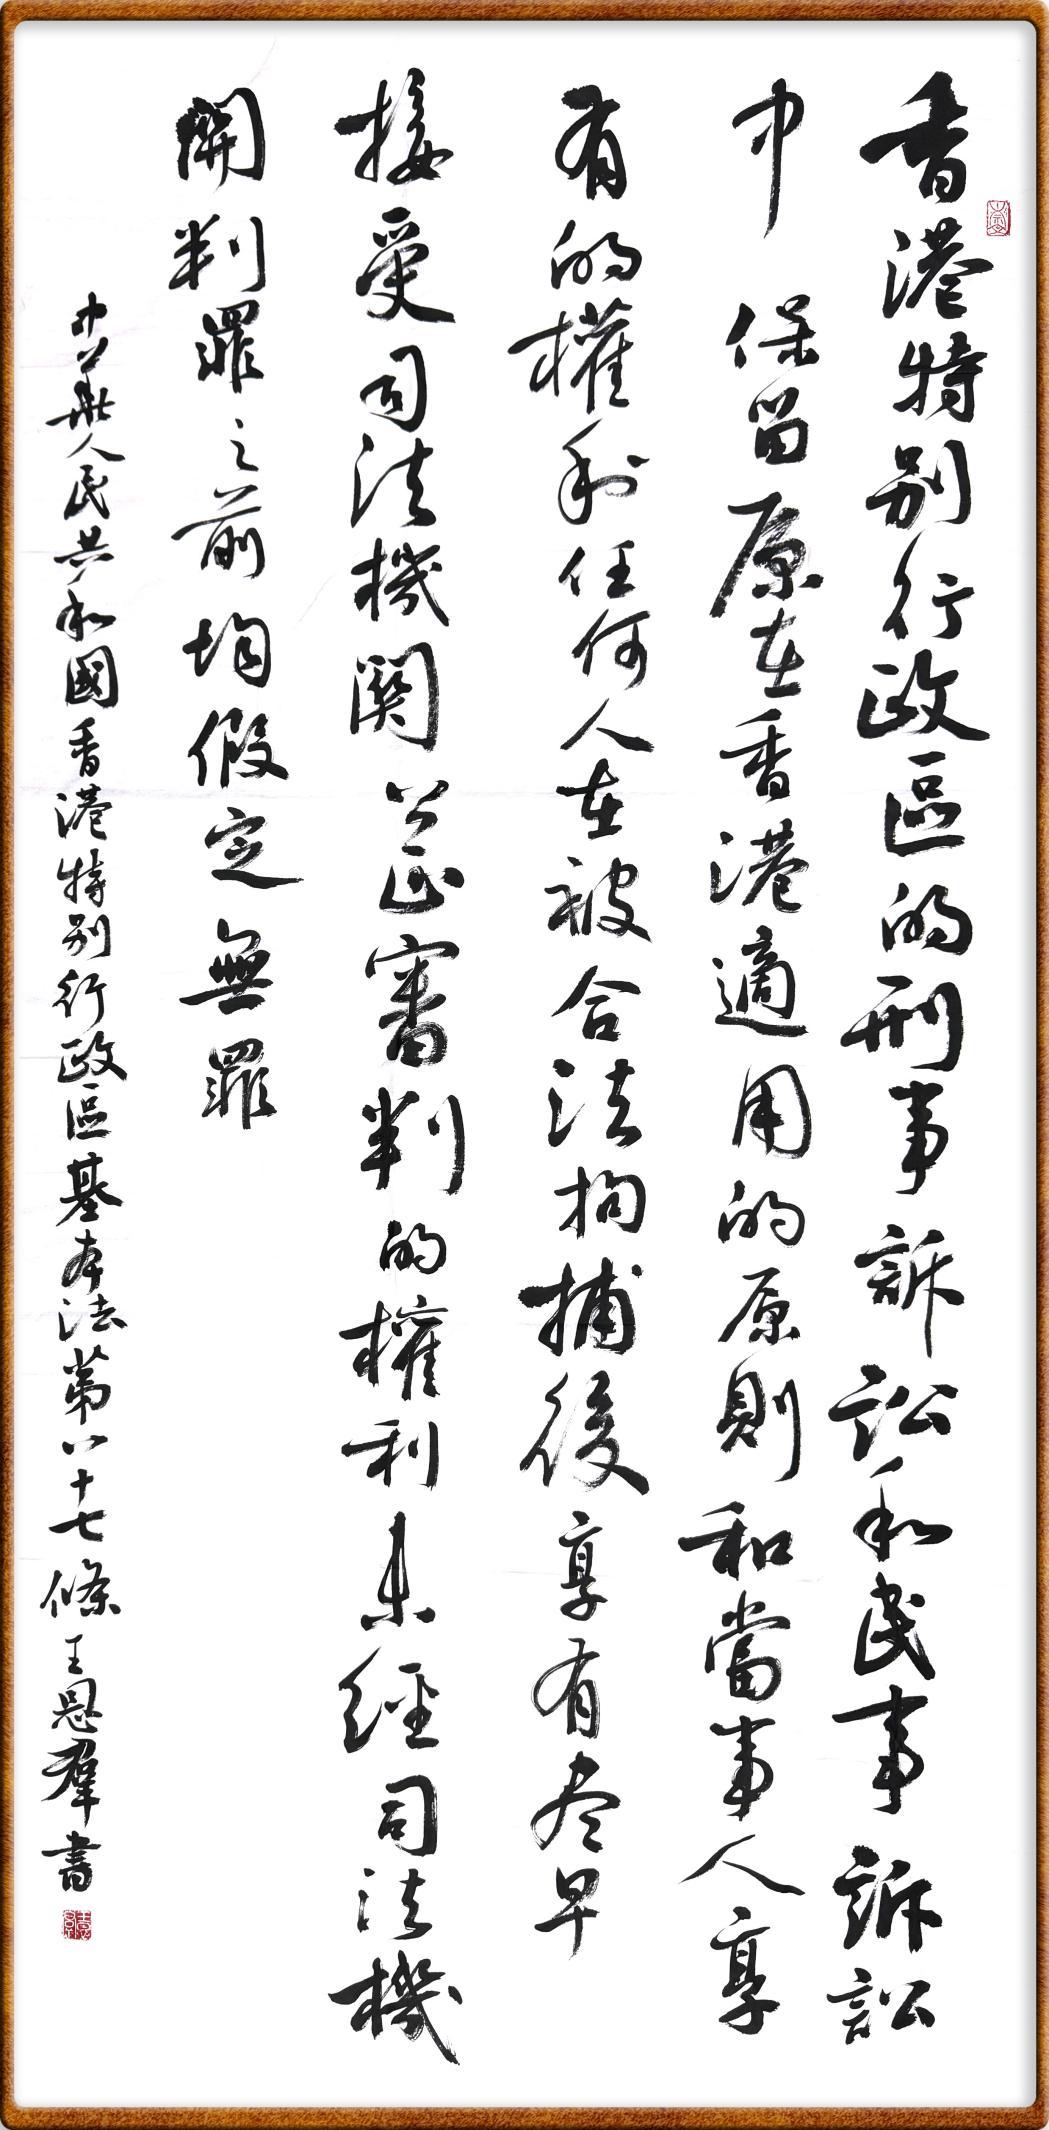 香港特别行政區的刑事訴訟和民事訴訟
中保留原在香港適用的原則和當事人享
有的權利任何人在被合法拘捕後享有尽早
接受司法機關公正審判的權利未經司法機
關判罪之前均假定無罪
中华人民共和國香港特别行政區基本法第八十七條王恩群書